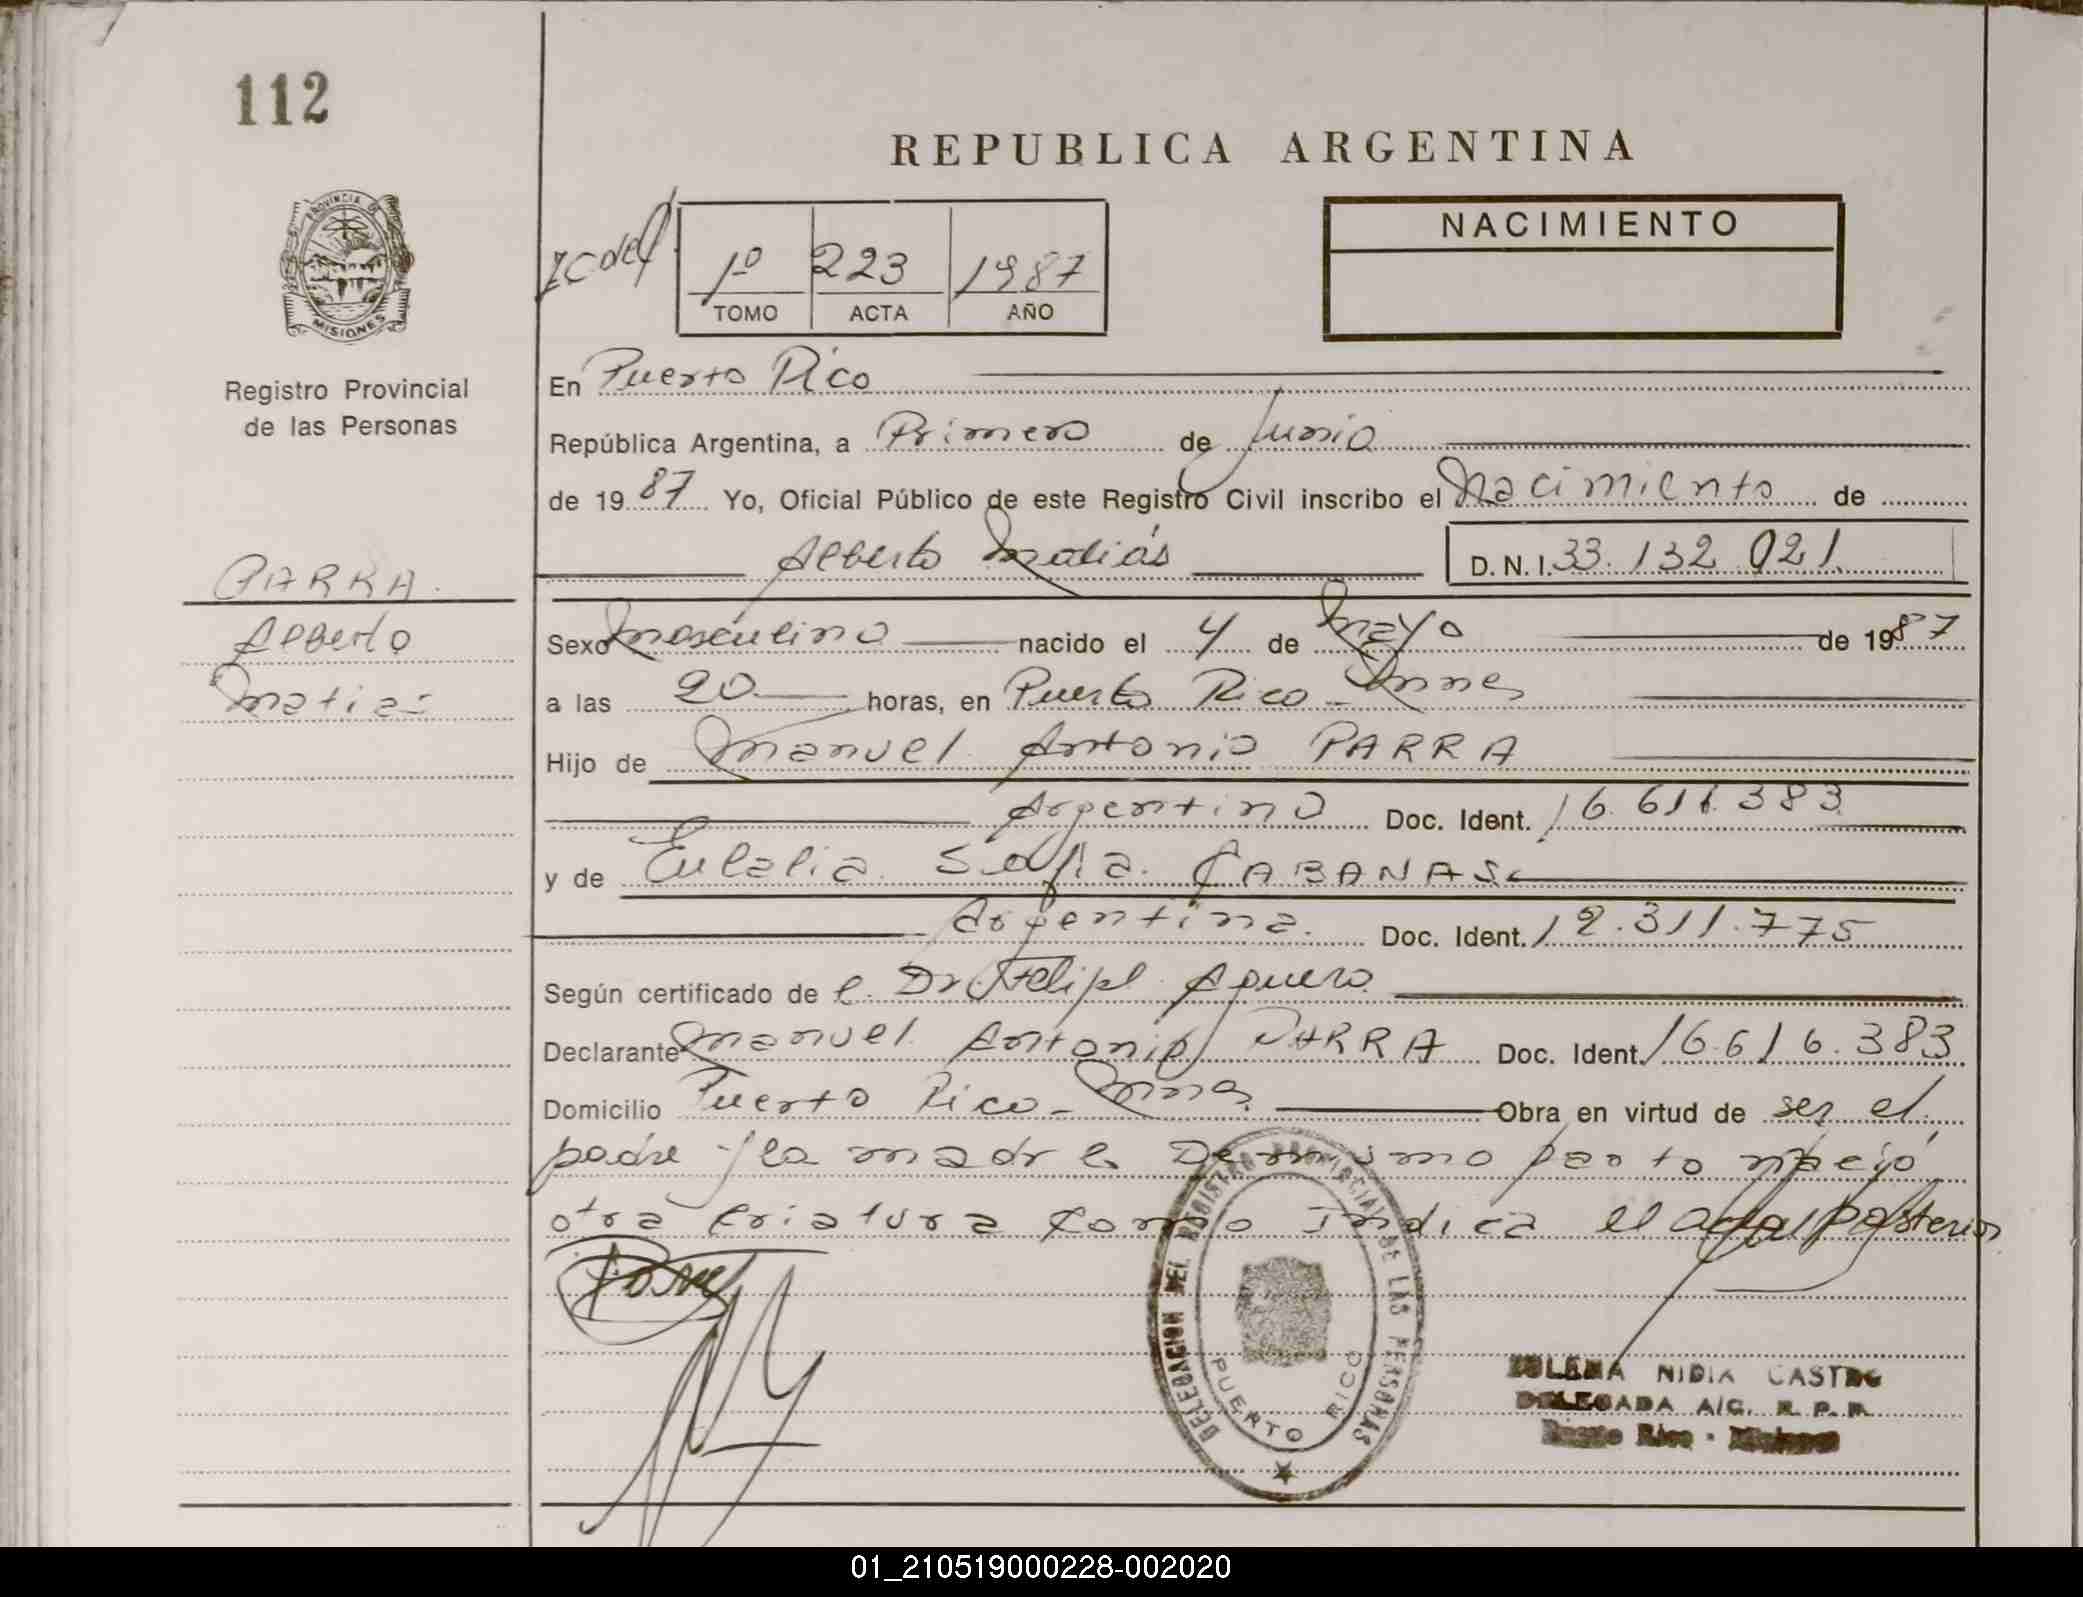 112
REPUBLICA ARGENTINA
PROVINCIA DE
MISIONES
Registro Provincial
de las Personas
1º 223 1987
TOMO ACTA AÑO
NACIMIENTO
En Puerto Rico
República Argentina, a Primero de Junio
de 1987 Yo, Oficial Público de este Registro Civil inscribo el Nacimiento de
Alberto Matiás D.N.I. 33.132.021
PARRA.
Alberto
Matias
Sexo Masculino nacido el 4 de Mayo de 1987
a las 20 horas, en Puerto Rico - Mnes
Hijo de Manuel Antonio PARRA
Argentino Doc. Ident. 16.616.383
y de Eulalia Sofia CABANAS.
Argentina. Doc. Ident. 12.311.775
Según certificado de l. Dr. Felipe Aguero
Declarante Manuel Antonio PARRA Doc. Ident. 16.616.383
Domicilio Puerto Rico - Mnes Obra en virtud de ser el
padre y la madre Del mismo parto nació
otra criatura como indica el acta posterior
DELEGACION DEL REGISTRO PROVINCIAL DE LAS PERSONAS
PUERTO RICO
NIDIA CASTRO
DELEGADA A/C. R. P. P.
Puerto Rico - Misiones
01_210519000228-002020